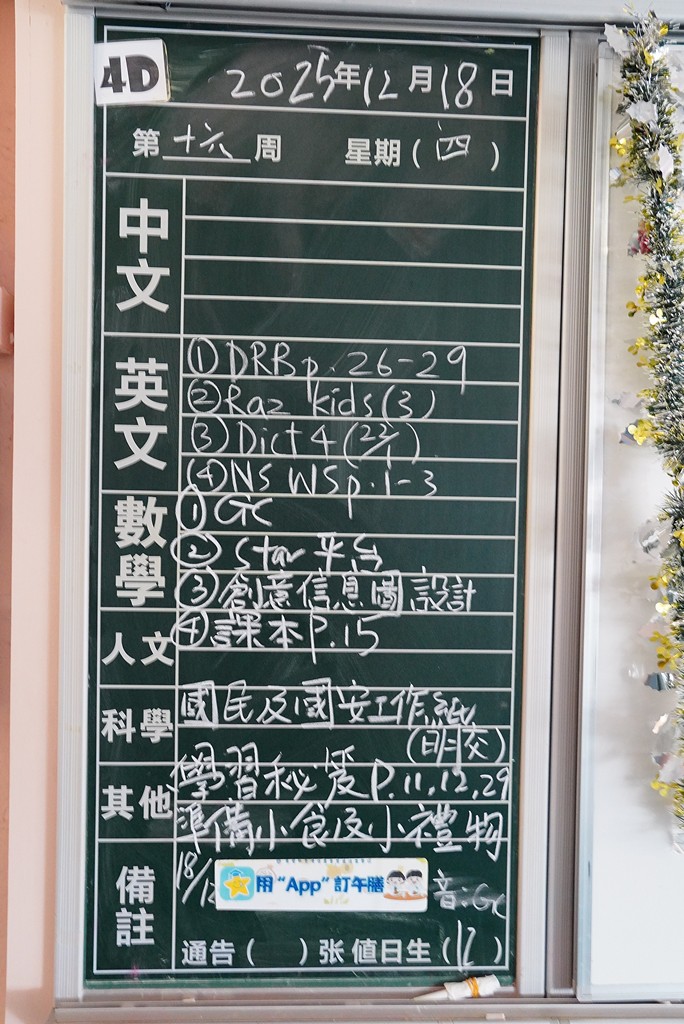 4D
2025年12月18日
第十六周 星期(四)
中文
英文
①DRB p.26-29
②Raz kids(3)
③Dict 4(22/1)
④NS WS p.1-3
數學
①GC
②Star平台
③創意信息圖設計
④課本P.15
人文
科學
國民及國安工作紙
(明交)
其他
學習秘笈P.11,12,29
準備小食及小禮物
備註
18/12
用“App”訂午膳
音:GC
通告( )张 值日生(12)